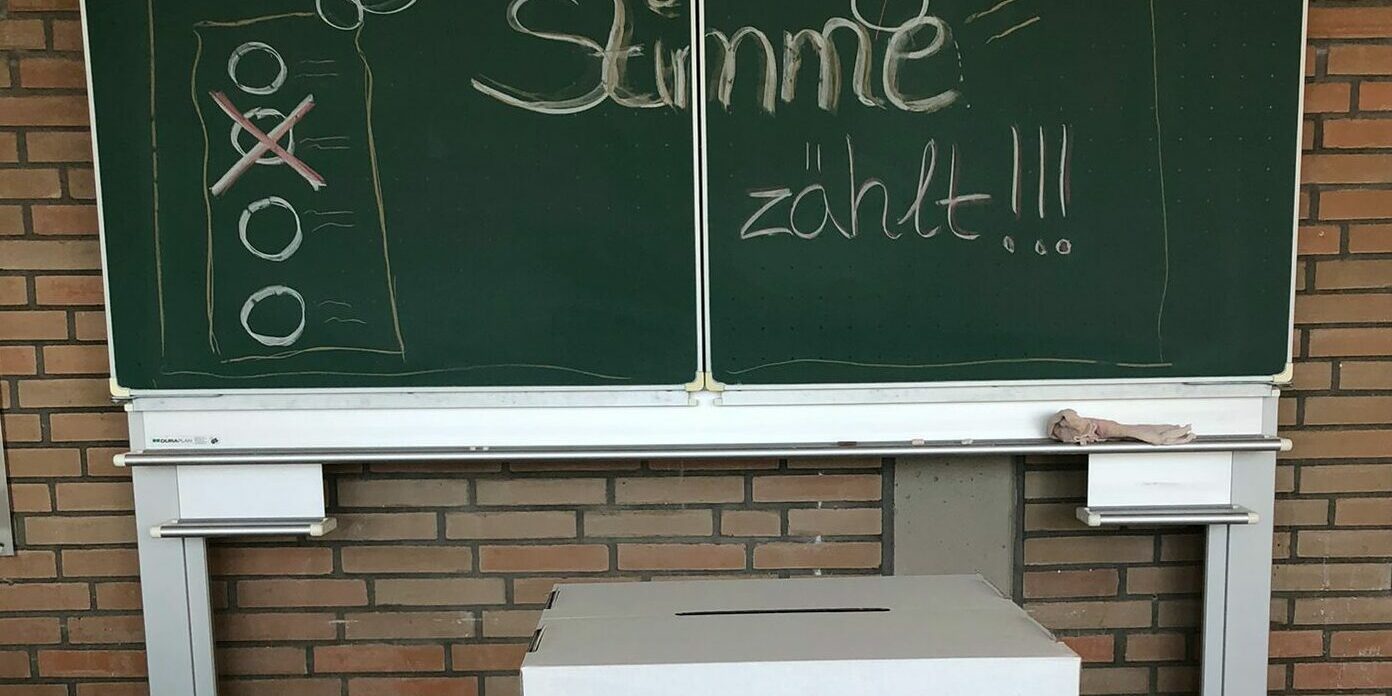 Stimme
zählt!!!
DURAPLAN